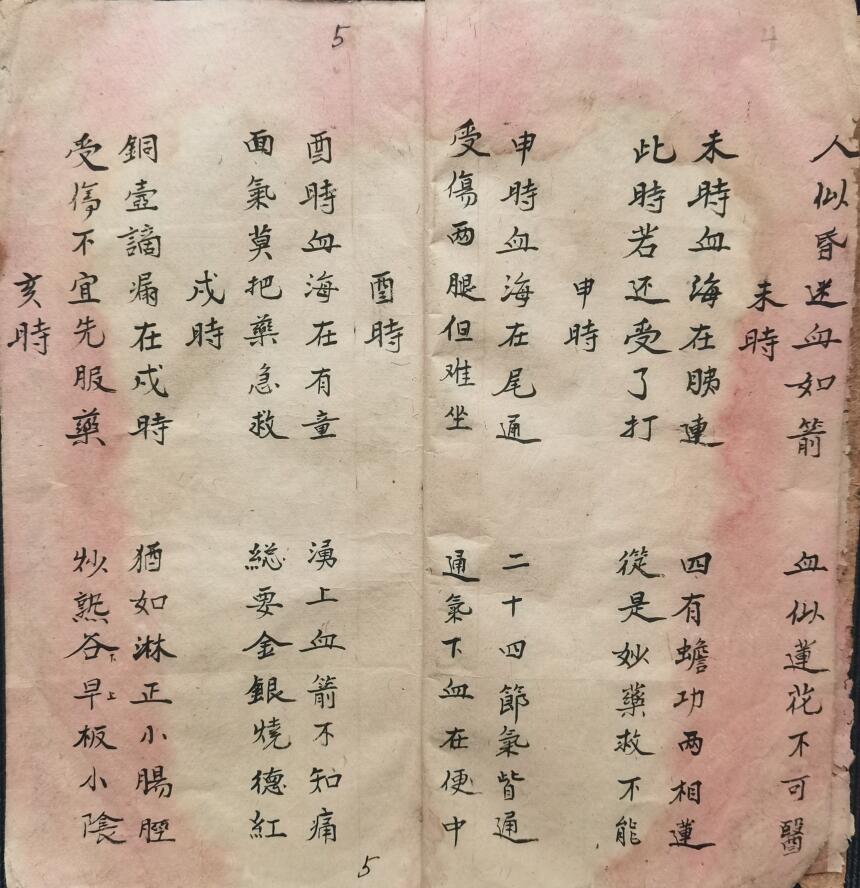 4
人似昏迷血如箭 血似蓮花不可醫
未時
未時血海在胰連 四有蟾功兩相蓮
此時若还受了打 從是妙藥救不能
申時
申時血海在尾通 二十四節氣皆通
受傷两腿但难坐 通氣下血在便中
5
酉時
酉時血海在有童 湧上血箭不知痛
面氣莫把藥急救 総要金銀燒德紅
戍時
銅壺謫漏在戍時 猶如淋正小腸脛
受傷不宜先服藥 炒熟谷下早上板小陰
亥時
5